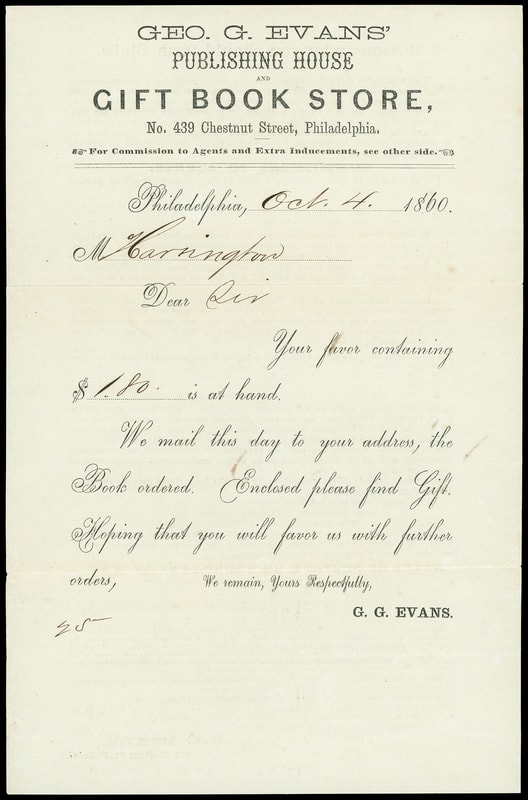 GEO. G. EVANS'
PUBLISHING HOUSE
AND
GIFT BOOK STORE,
No. 439 Chestnut Street, Philadelphia.
For Commission to Agents and Extra Inducements, see other side.
Philadelphia, Oct. 4. 1860.
M Harrington
Dear Sir
Your favor containing
$ 1.80. is at hand.
We mail this day to your address, the
Book ordered. Enclosed please find Gift.
Hoping that you will favor us with further
orders, We remain, Yours Respectfully,
G. G. EVANS.